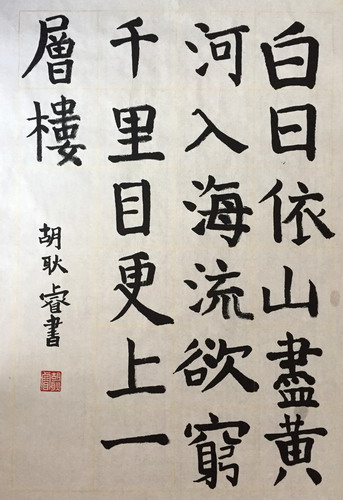 白日依山盡黃
河入海流欲窮
千里目更上一
層樓
胡耿睿書